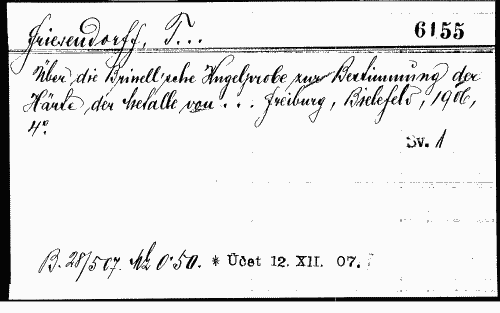 Friesendorff, T...
6155
Über die Brinell'sche Kugelprobe zur Bestimmung der
Härte der Metalle von ... Freiburg, Bielefeld, 1906,
4°.
Sv. 1
B. 28/507. Mk 0·50. * Účet 12. XII. 07.